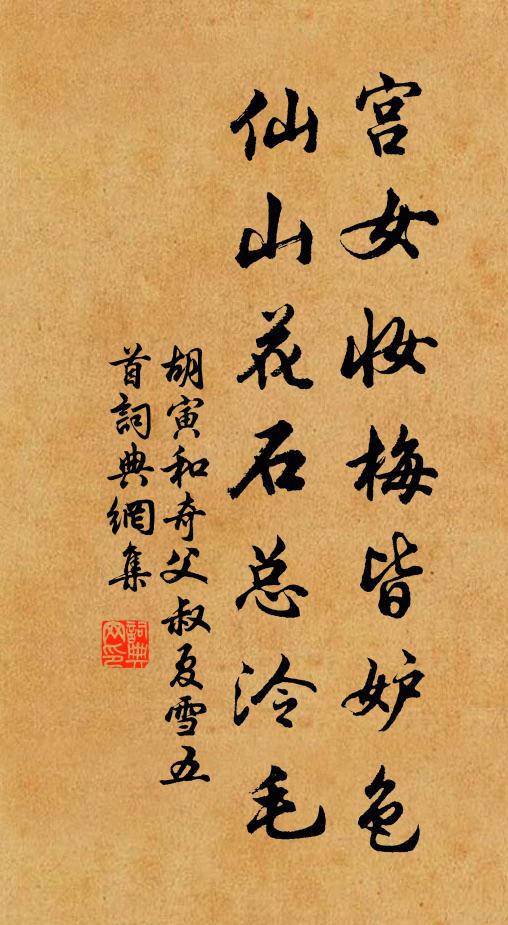 宫女妆梅皆妒色
仙山花石总泠毛
胡寅和奇父叔夏雪五
首詞典網集
詞典
网印